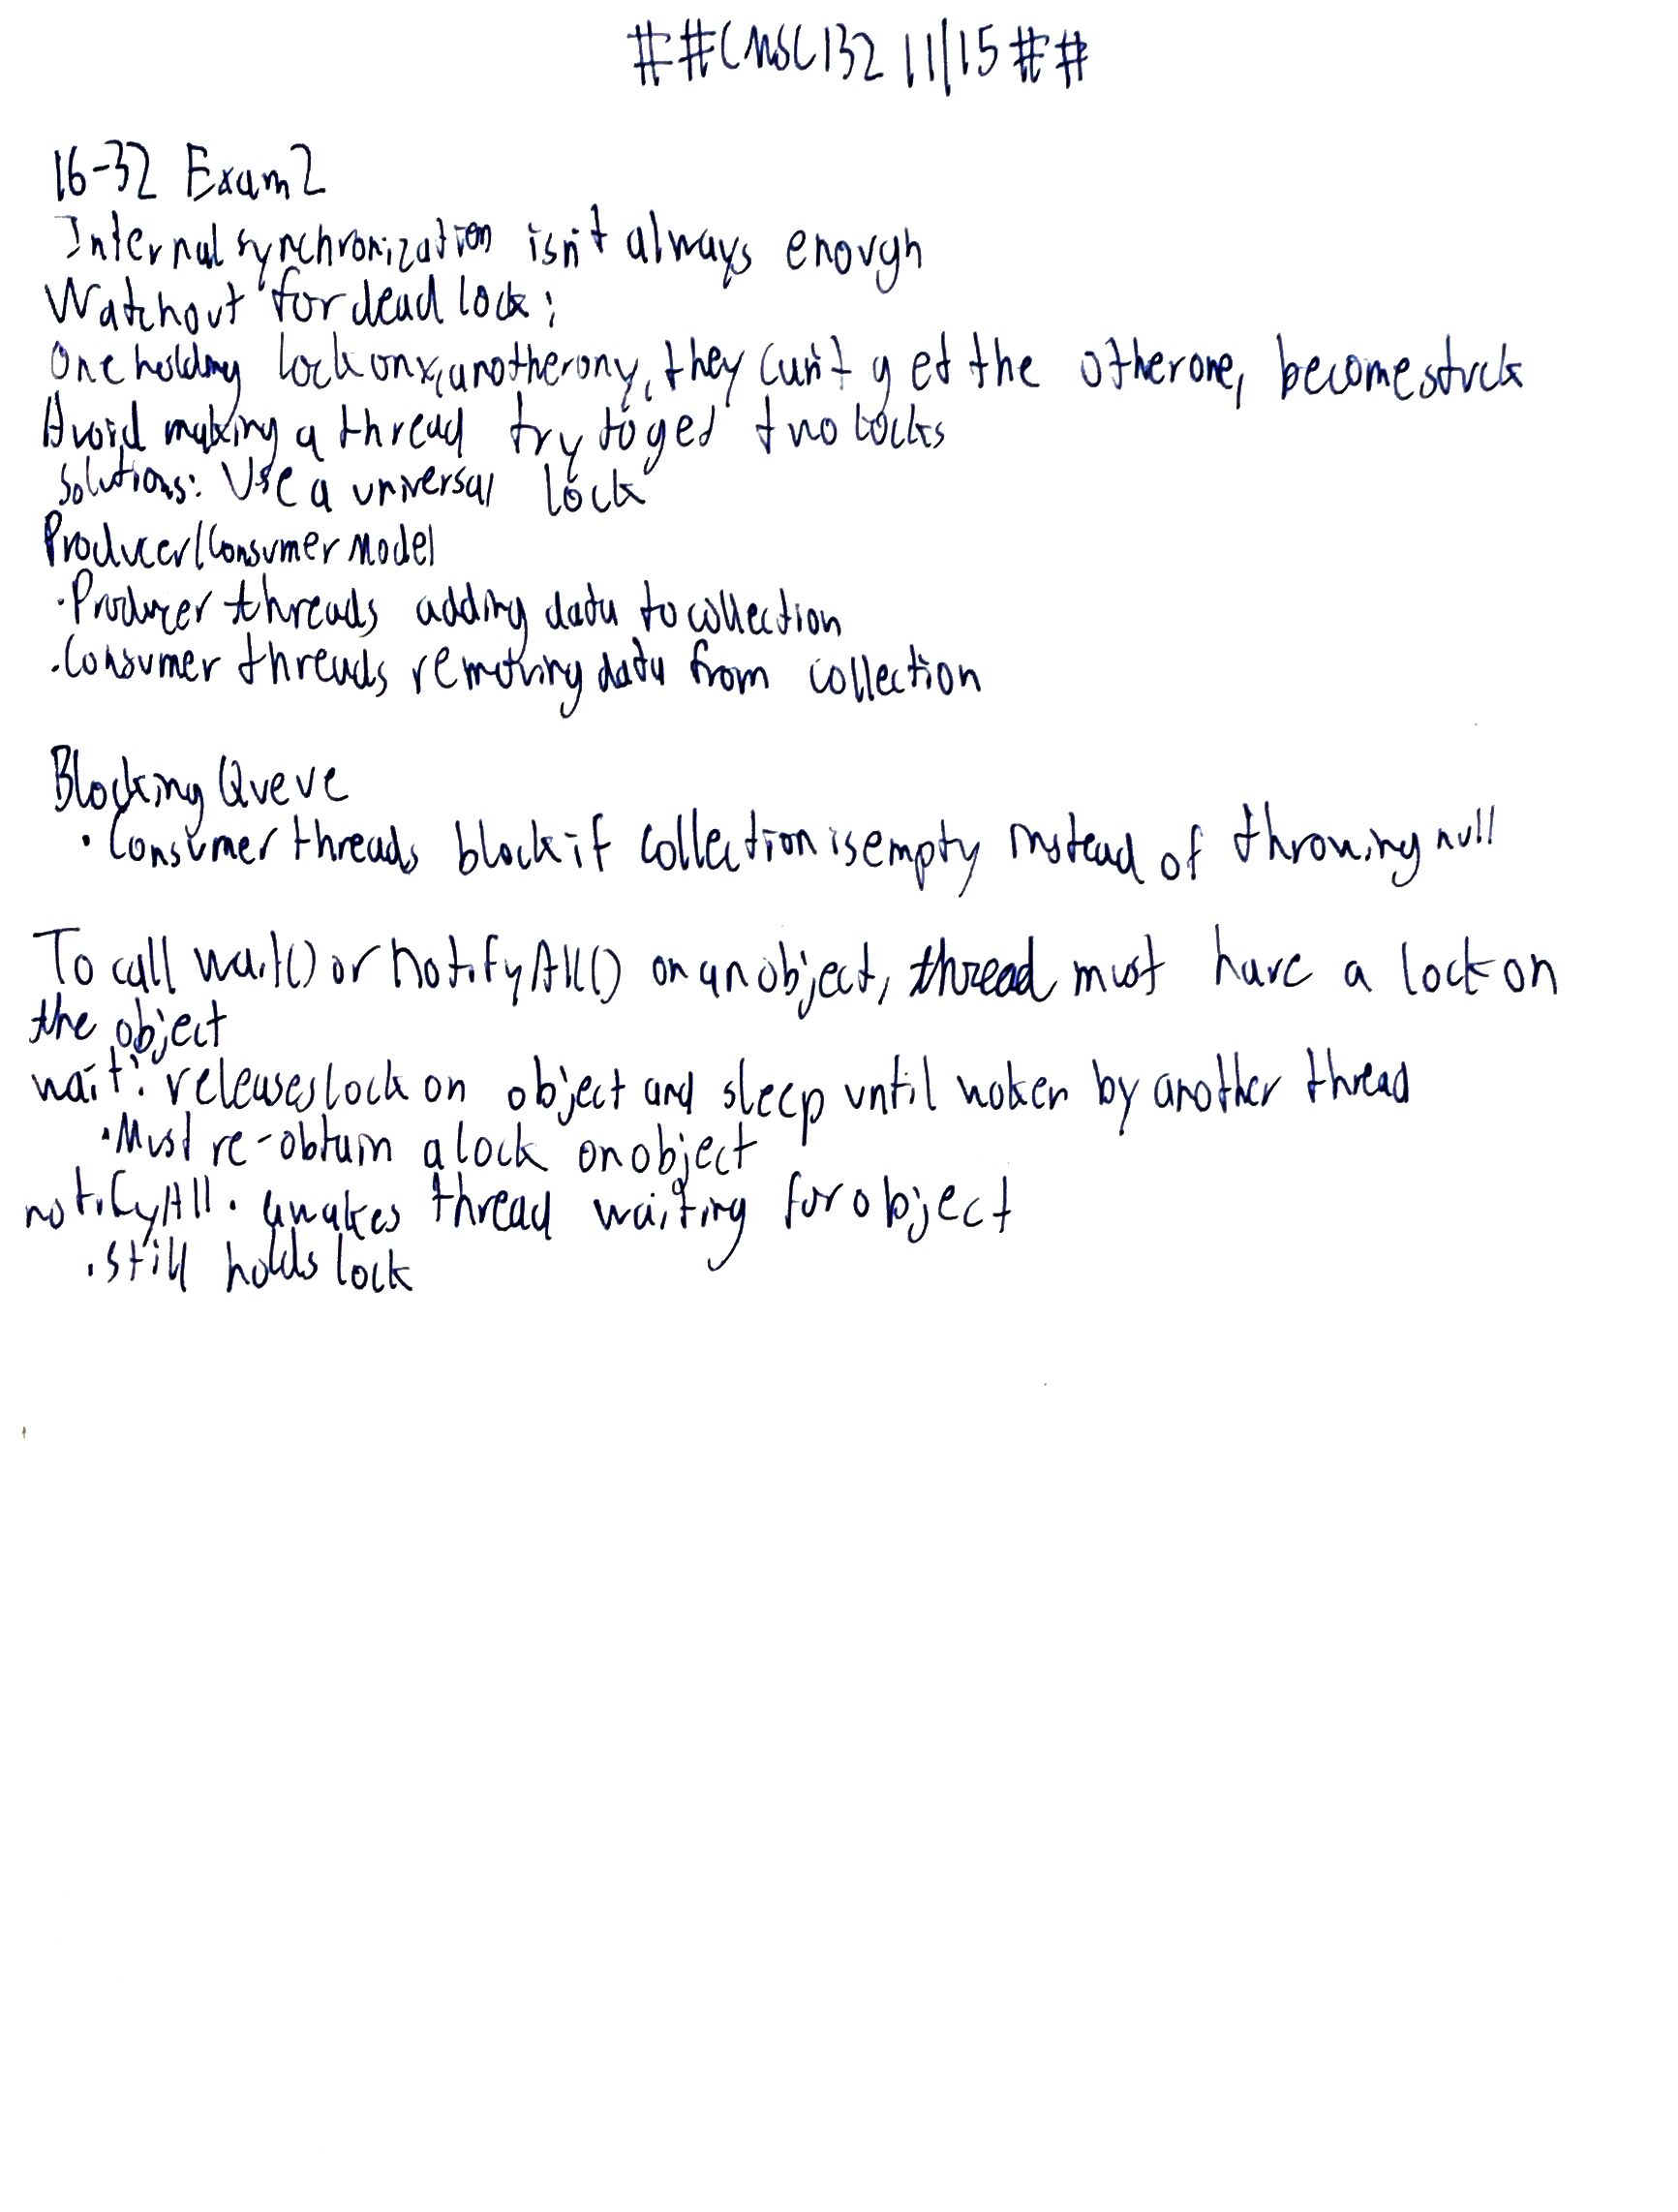 ##CMSC132 11/15##
16-32 Exam 2
Internal synchronization isn't always enough
Watch out for dead lock:
One holding lock on x, another on y, they can't get the other one, become stuck
Avoid making a thread try to get two locks
Solutions: Use a universal lock
Producer/Consumer Model
·Producer threads adding data to collection
·Consumer threads removing data from collection
Blocking Queue
·Consumer threads block if collection is empty instead of throwing null
To call wait() or notifyAll() on an object, thread must have a lock on
the object
wait: releases lock on object and sleep until woken by another thread
·Must re-obtain a lock on object
notifyAll: awakes thread waiting for object
·still holds lock